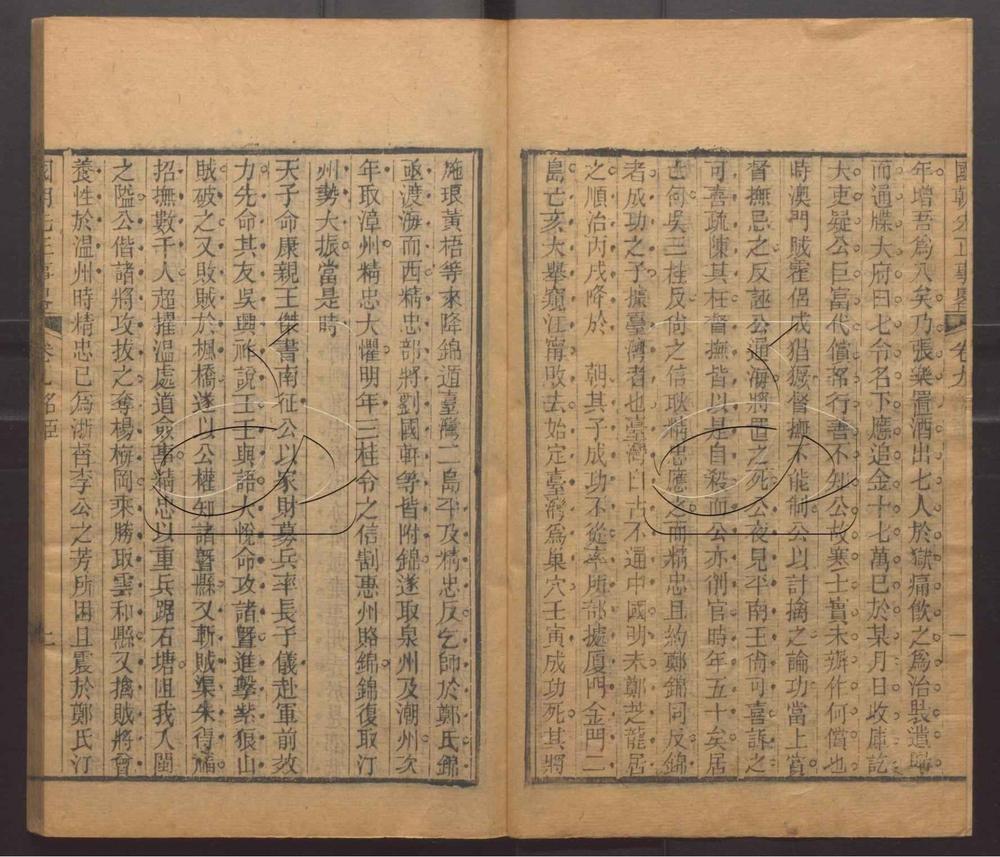 國朝先正事畧 卷九
年增吾爲八矣乃張樂置酒出七人於獄痛飲之爲治裝遣歸
而通牒大府曰七令名下應追金十七萬已於某月日收庫訖
大吏疑公巨富代償諾行善不知公故寒士實未辦作何償也
時澳門賊霍侶成猖獗督撫不能制公以計擒之論功當上賞
督撫忌之反誣公通海將置之死公夜見平南王尚可喜訴之
可喜疏陳其枉督撫皆以是自殺而公亦削官時年五十矣居
亡何吳三桂反尚之信耿精忠應之而精忠且約鄭錦同反錦
者成功之子據臺灣者也臺灣自古不通中國明末鄭芝龍居
之順治丙戌降於 朝其子成功不從率所部據厦門金門二
島己亥大舉窺江甯敗去始定臺灣爲巢穴壬寅成功死其將
施琅黃梧等來降錦遁臺灣二島平及精忠反乞師於鄭氏錦
亟渡海而西精忠部將劉國軒等皆附錦遂取泉州及潮州次
年取漳州精忠大懼明年三桂令之信割惠州賂錦錦復取汀
州勢大振當是時
天子命康親王傑書南征公以家財募兵率長子儀赴軍前效
力先命其友吳興祚說王王與語大悅命攻諸曁進擊紫狼山
賊破之又敗賊於楓橋遂以公權知諸曁縣又斬賊渠朱得福
招撫數千人超擢温處道僉事精忠以重兵踞石塘阻我入閩
之隘公偕諸將攻拔之奪楊梅岡乘勝取雲和縣又擒賊將曾
養性於温州時精忠已爲浙督李公之芳所困且震於鄭氏汀
國朝先正事畧 卷九 名臣 上